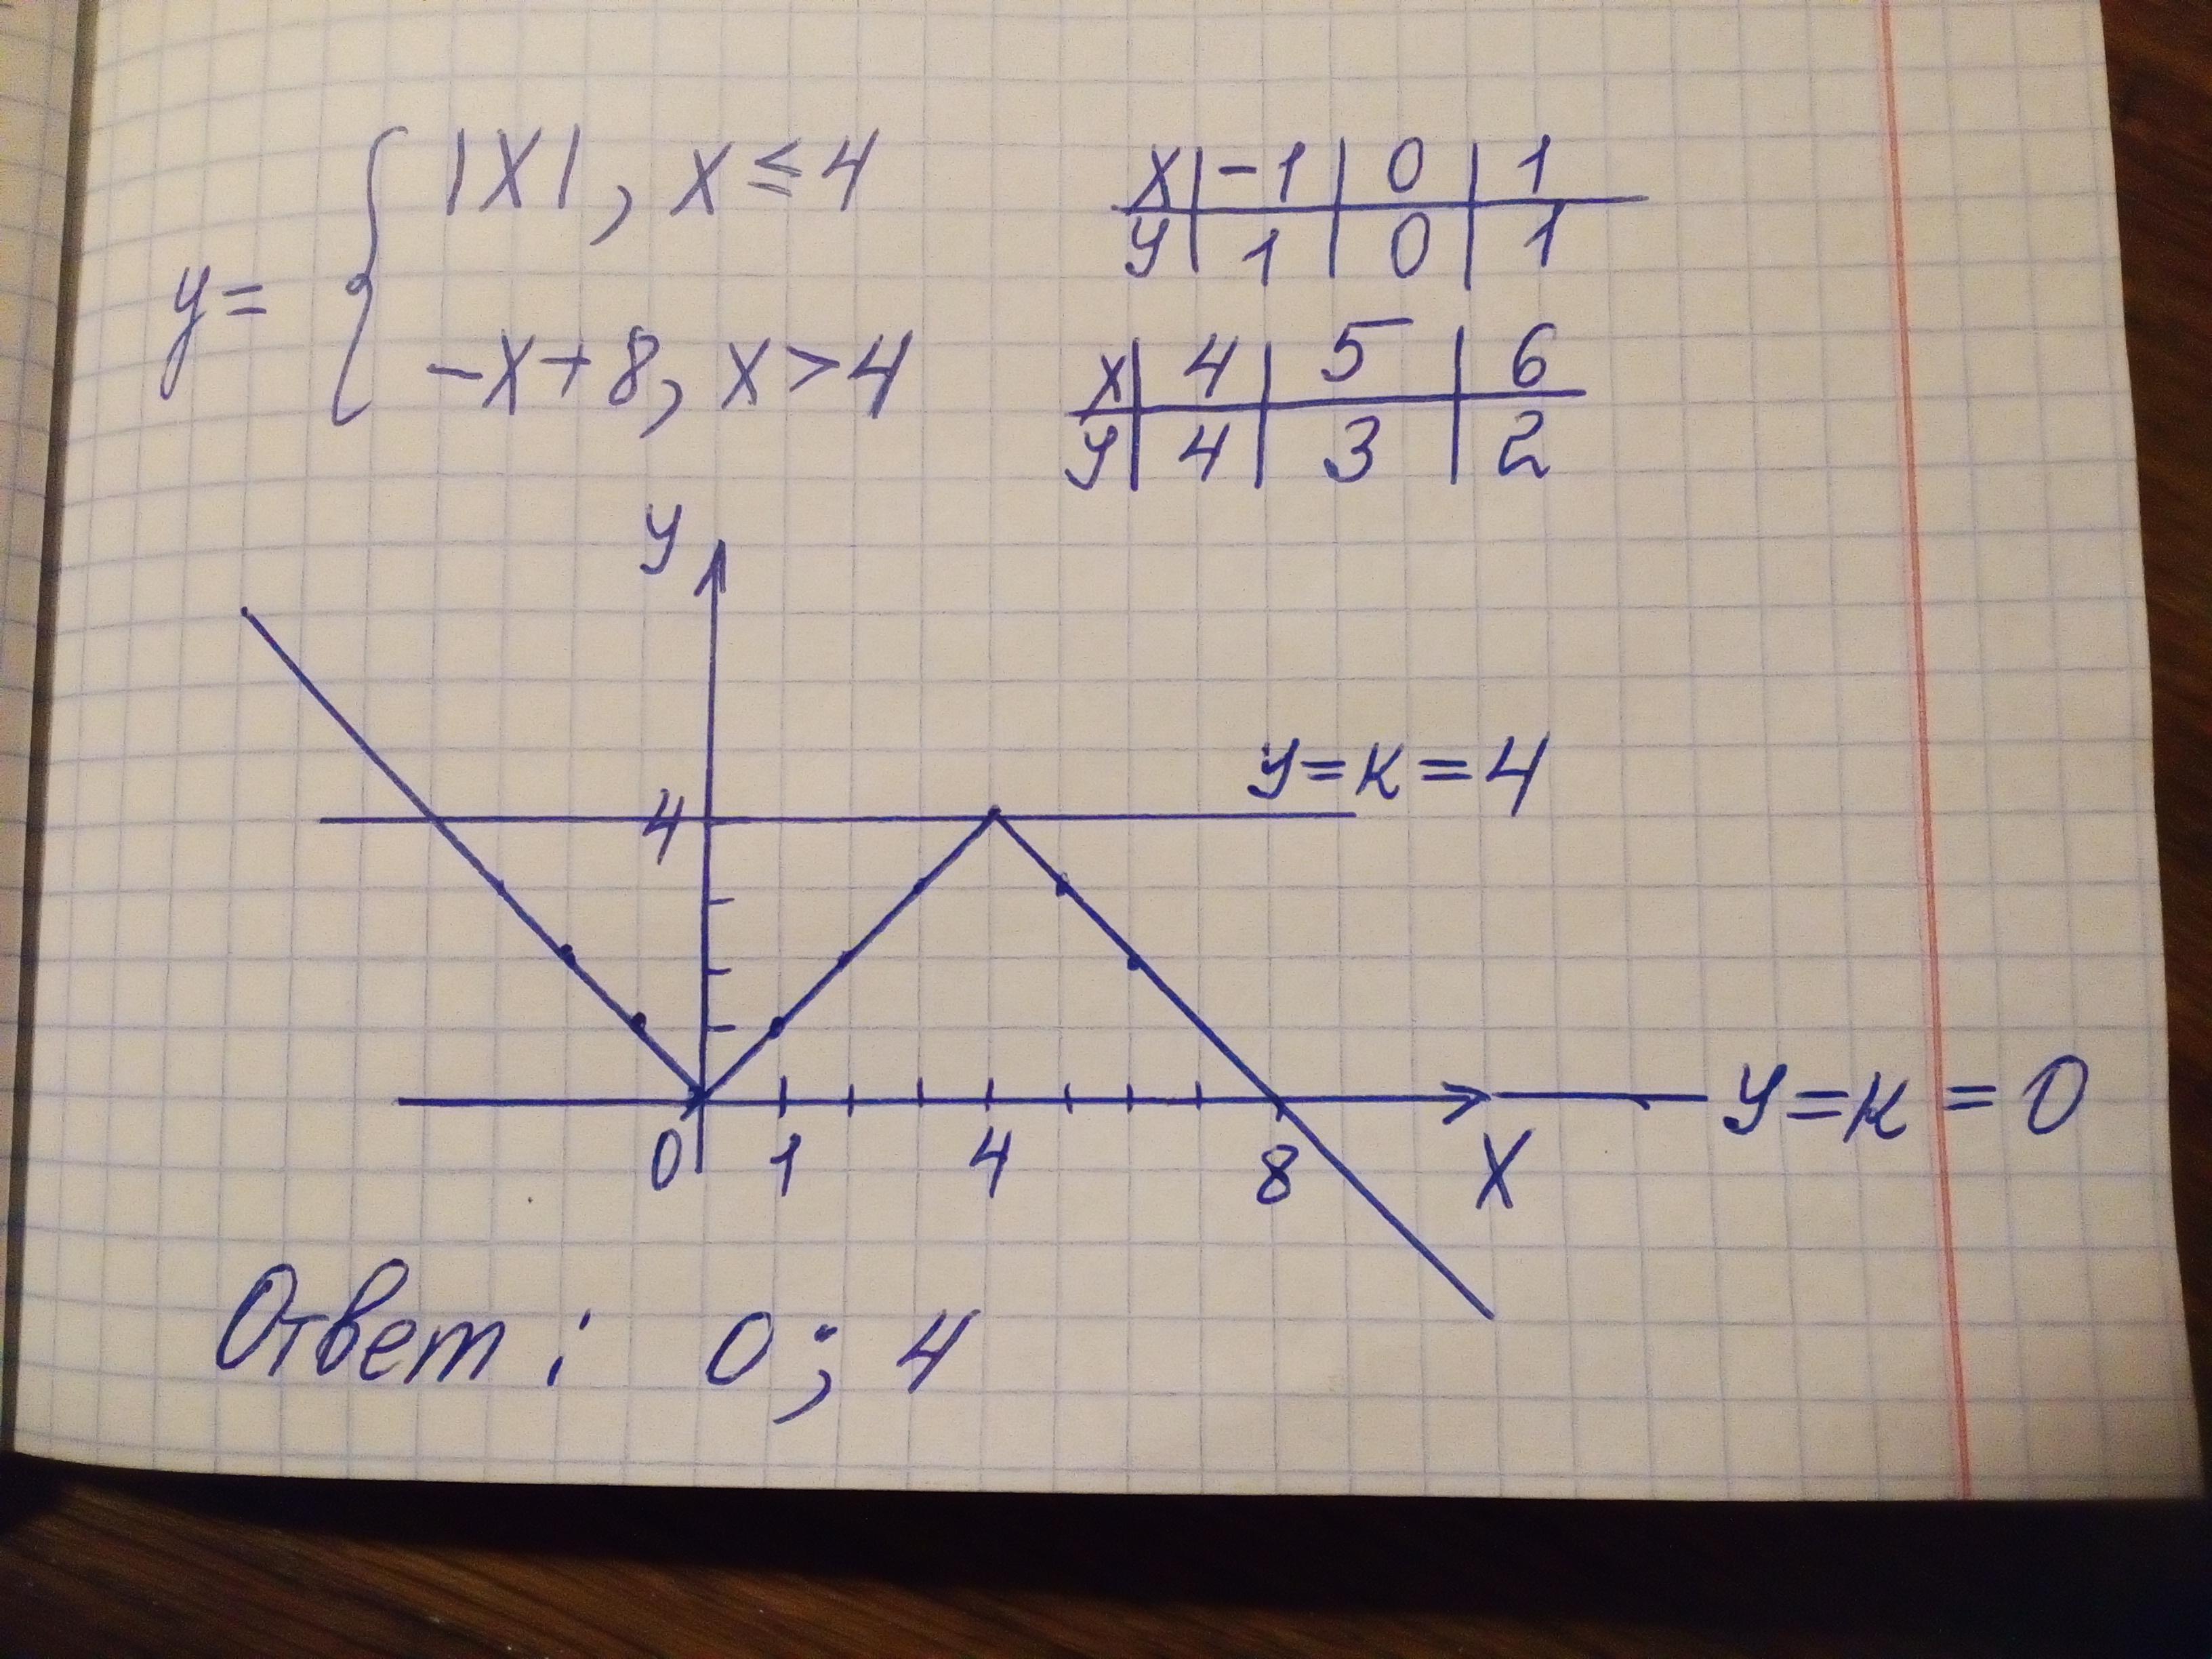 y= { |x|, x ≤ 4
-x+8, x > 4
x | -1 | 0 | 1
y | 1 | 0 | 1
x | 4 | 5 | 6
y | 4 | 3 | 2
y
y=к=4
4
y=к=0
0 1 4 8 x
Ответ: 0; 4